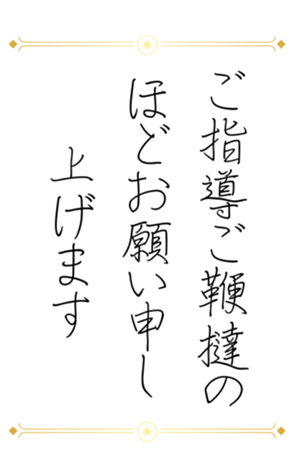 ご指導ご鞭撻の
ほどお願い申し
上げます